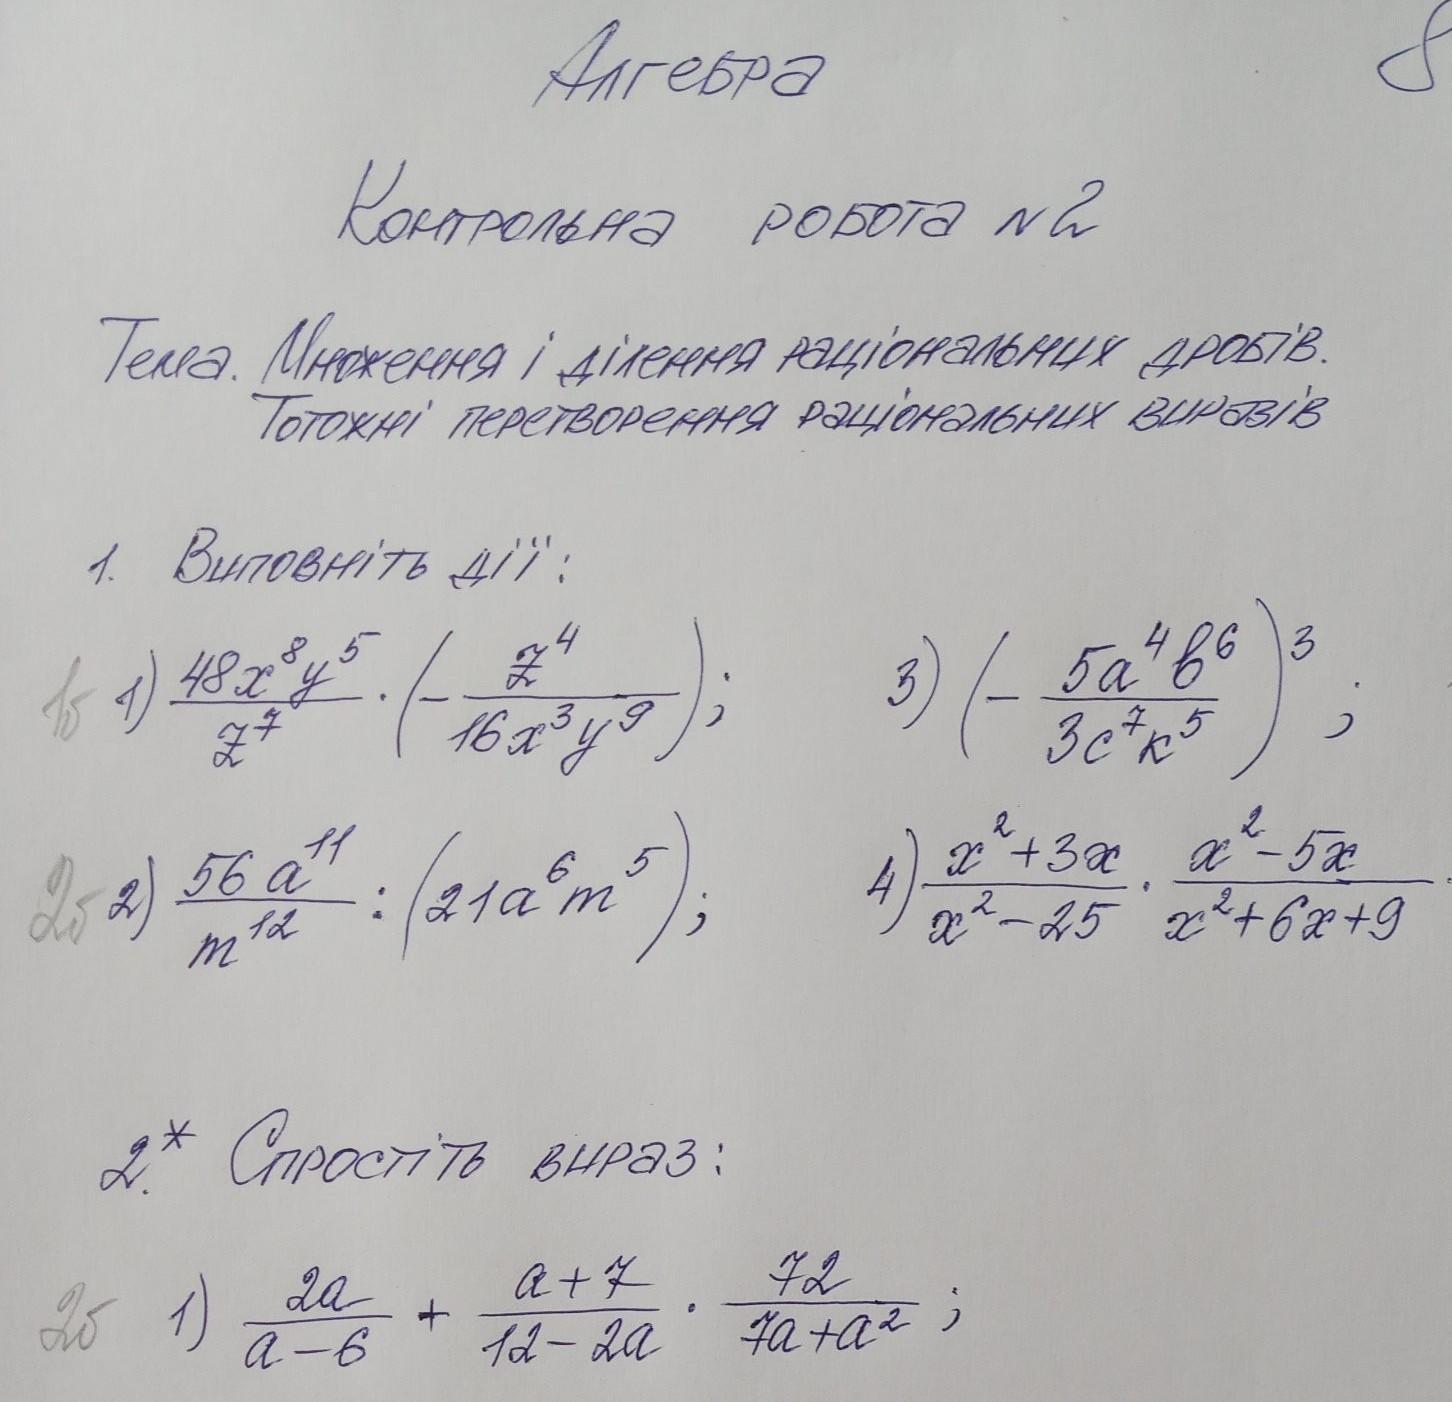 Алгебра 8
Контрольна робота №2
Тема. Множення і ділення раціональних дробів.
Тотожні перетворення раціональних виразів
1. Виповніть дії:
1б 1) \frac{48x^8y^5}{z^7} · (-\frac{z^4}{16x^3y^9}); 3) (-\frac{5a^4b^6}{3c^7k^5})^3;
2б 2) \frac{56a^{11}}{m^{12}} : (21a^6m^5); 4) \frac{x^2+3x}{x^2-25} · \frac{x^2-5x}{x^2+6x+9}.
2.* Спростіть вираз:
2б 1) \frac{2a}{a-6} + \frac{a+7}{12-2a} · \frac{72}{7a+a^2};